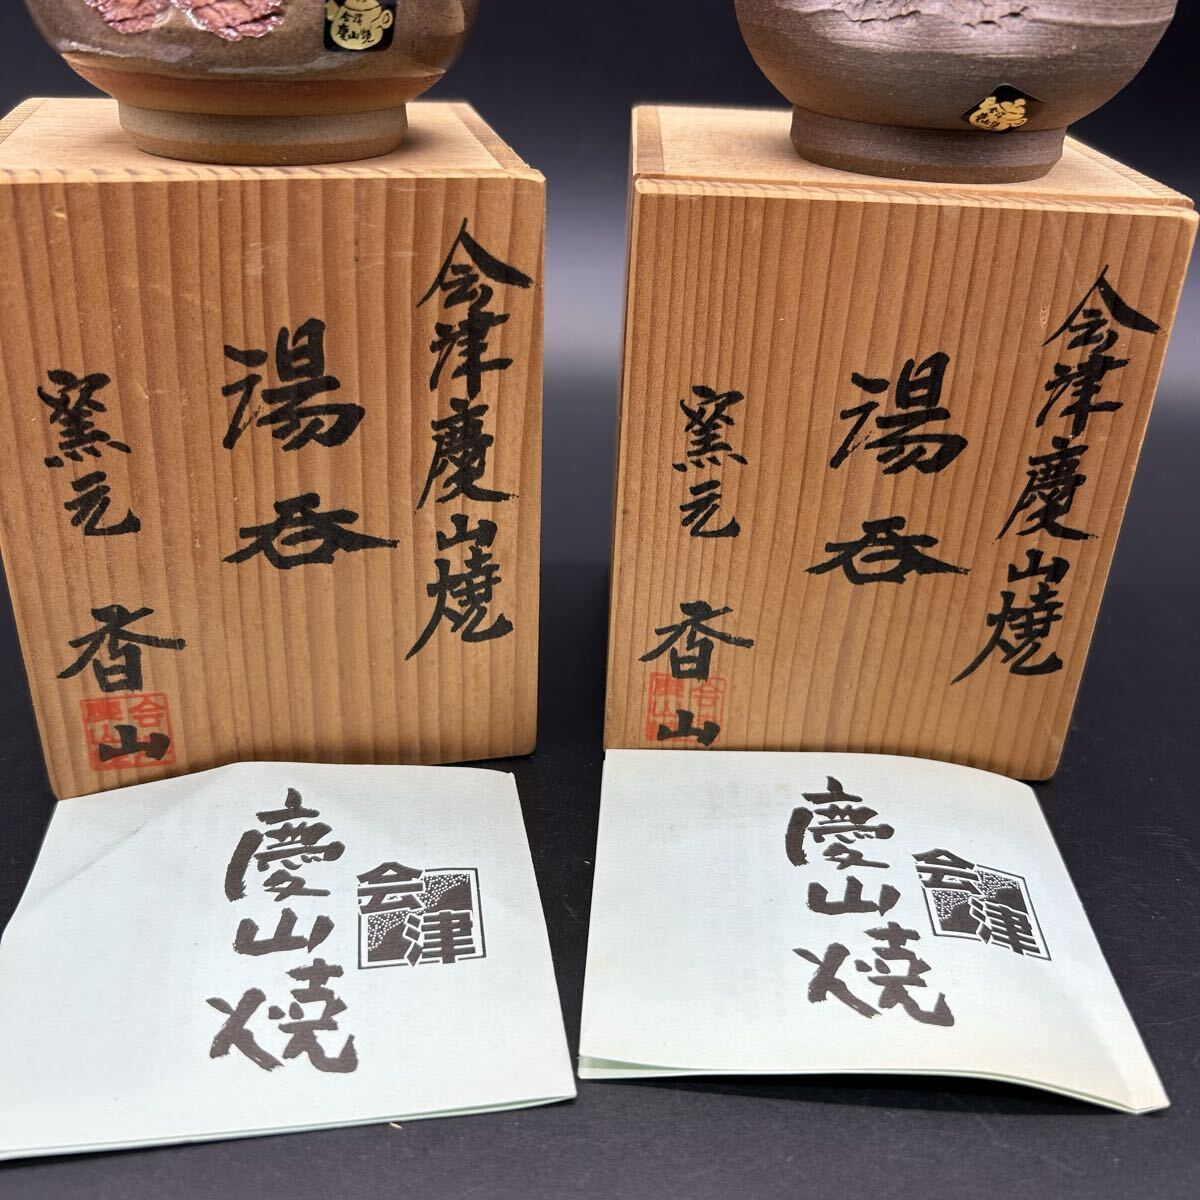 会津
慶山焼
会津
慶山焼
会津慶山焼
湯呑
窯元
香山
会津慶山焼
湯呑
窯元
香山
慶山焼
会津
慶山焼
会津